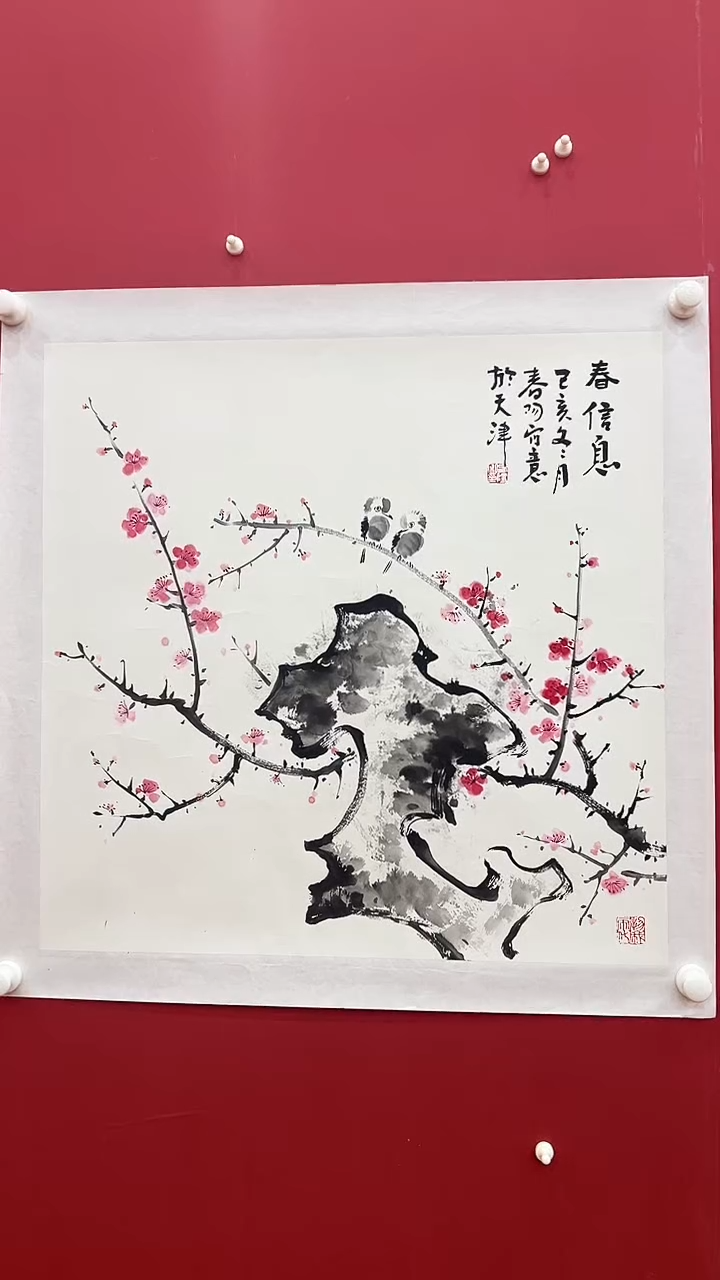 春信息
己亥冬月
春阳写意
於天津